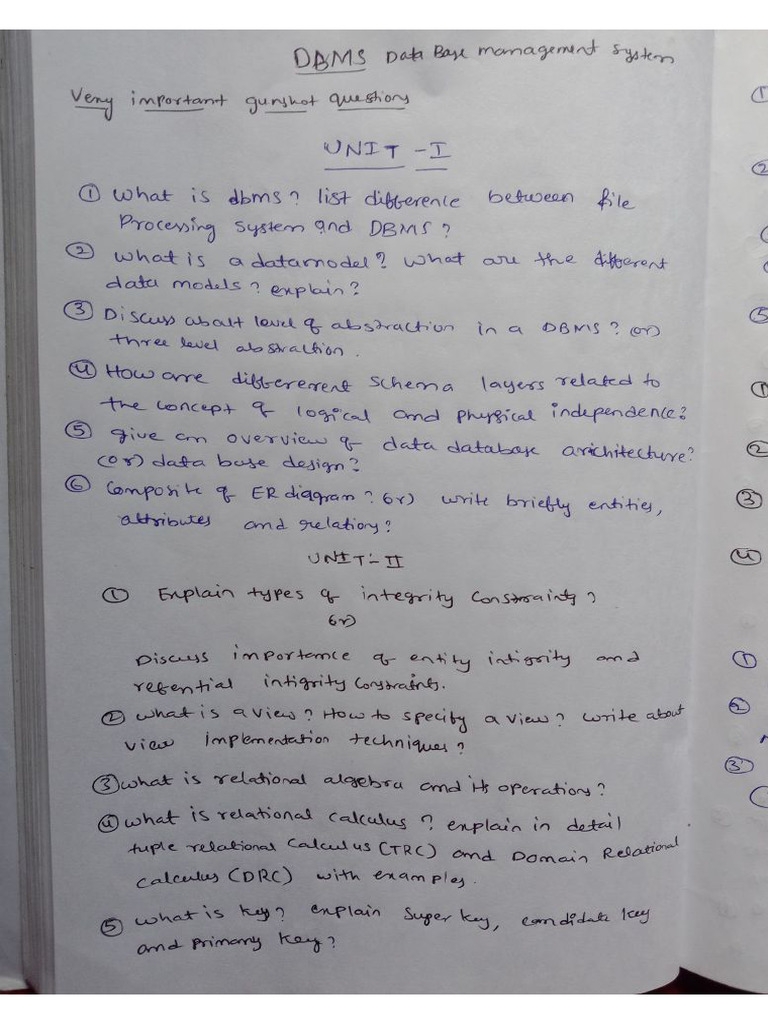 DBMS Data Base management System
Very important gunshot questions
UNIT - I
① What is dbms? list difference between file
Processing System and DBMS?
② what is a datamodel? What are the different
data models? explain?
③ Discuss abalt level of abstraction in a DBMS? (or)
three level abstraction.
④ How are differerent schema layers related to
the concept of logical and physical independence?
⑤ give an overview of data database architecture?
(or) data base design?
⑥ composite of ER diagram? (or) write briefly entities,
attributes and relations?
UNIT-II
① Explain types of integrity constraints?
(or)
Discuss importance of entity intigrity and
refential intigrity constraints.
② what is a view? How to specify a view? write about
view implementation techniques?
③ what is relational algebra and its operations?
④ what is relational calculus? explain in detail
tuple relational calculus (TRC) and Domain Relational
calculus (DRC) with examples.
⑤ what is key? explain super key, candidate key
and primary key?
①
②
⑤
①
②
③
④
①
②
③